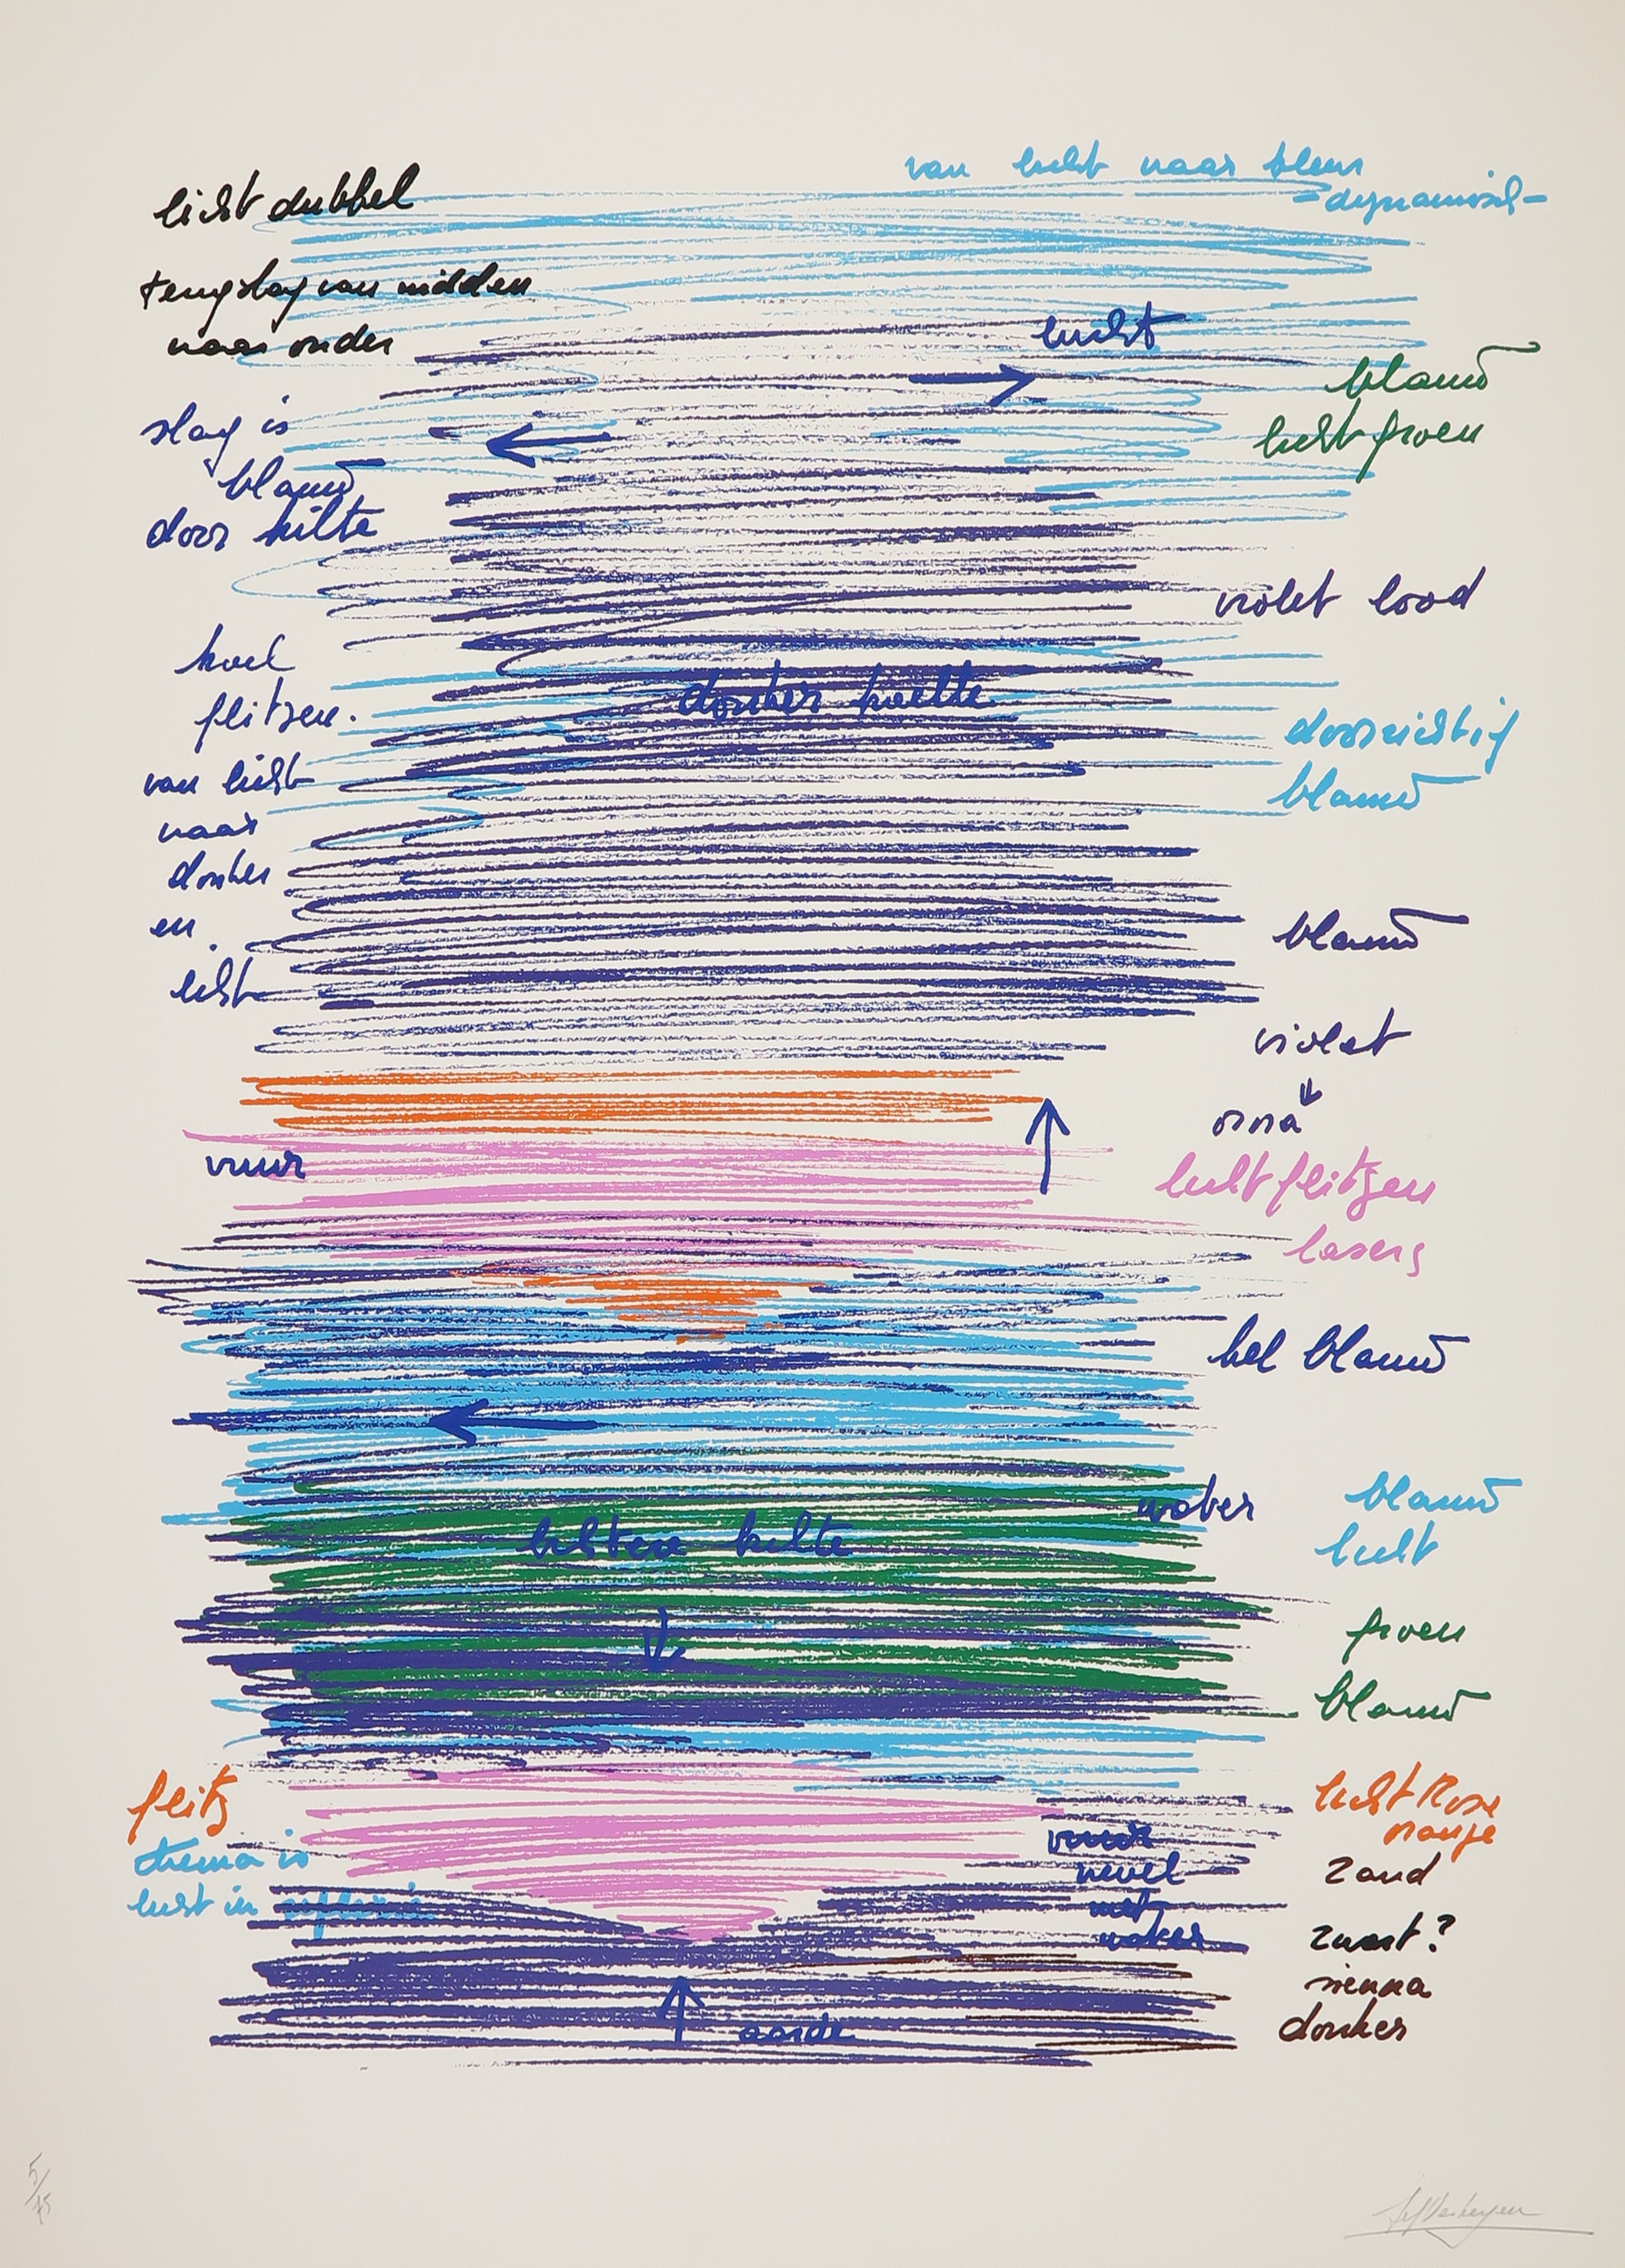 van licht naar kleur
- dynamisch -
licht dubbel
terugslag van midden
naar onder
lucht
blauw
lichtgroen
slag is
blauw
door kilte
violet lood
koel
flitsen.
van licht
naar
donker
en
licht
donker koelte
doorzichtig
blauw
blauw
violet
vuur
lichtflitsen
lasers
hel blauw
water
blauw
licht
lichtere kilte
groen
blauw
flits
thema is
licht in
licht Rose
oranje
zand
vuur
nevel
met
water
zwart?
sienna
donker
aarde
5/75